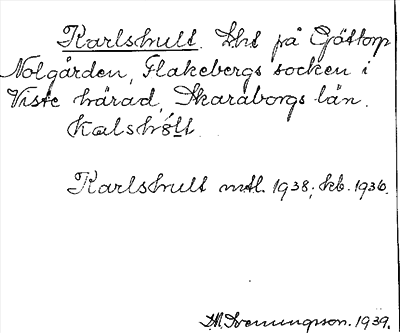 Karlshult. Lht på Göstorp
Nolgården, Flakebergs socken i
Viste härad, Skaraborgs län.
Kalshól̲t̲
Karlshult mtl. 1938; kb. 1936.
Sveningson. 1939.